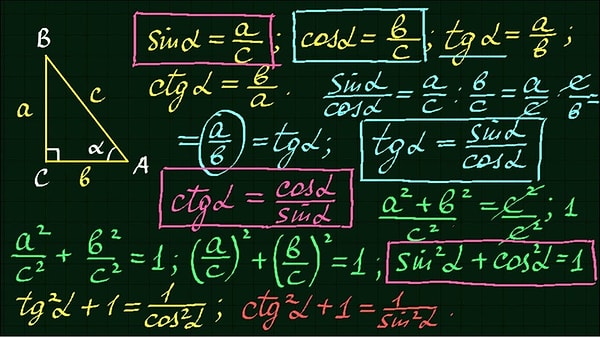 B
a
c
C
b
α
A
sinα = a/c ; cosα = b/c ; tgα = a/b ;
ctgα = b/a . sinα/cosα = a/c : b/c = a/c · c/b =
= a/b = tgα; tgα = sinα/cosα
ctgα = cosα/sinα (a² + b²)/c² = c²/c² ; 1
a²/c² + b²/c² = 1 ; (a/c)² + (b/c)² = 1 ; sin²α + cos²α = 1
tg²α + 1 = 1/cos²α ; ctg²α + 1 = 1/sin²α .